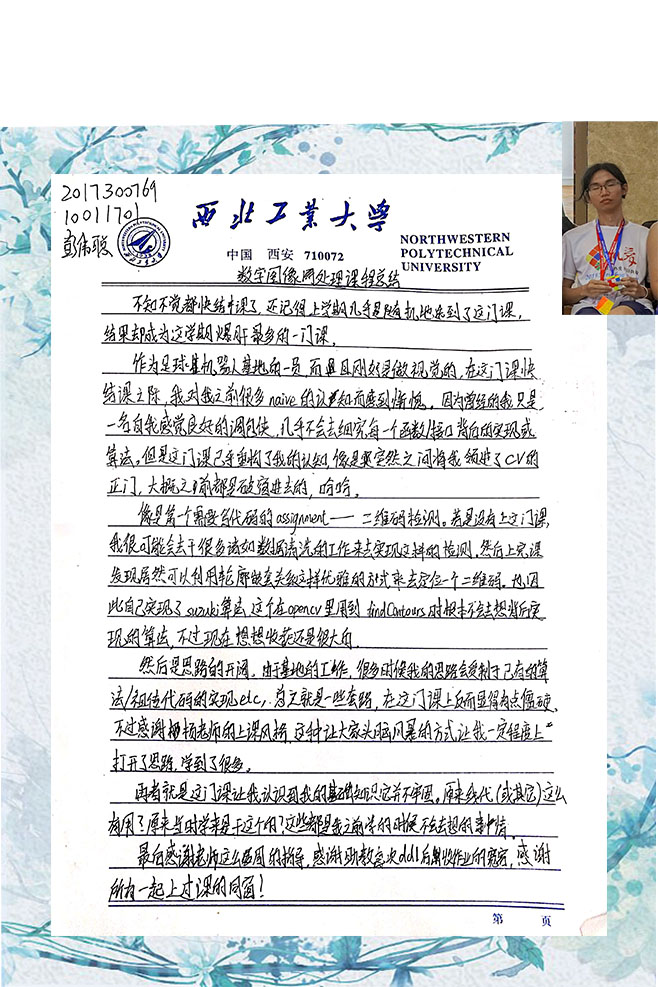 2017300769
10011701
彭伟璇
西北工业大学
中国 西安 710072
NORTHWESTERN
POLYTECHNICAL
UNIVERSITY
数字图像处理课程总结
不知不觉都快结课了,还记得上学期几乎是随机地来到了这门课,
结果却成为这学期爆肝最多的一门课。
作为足球机器人基地的一员,而且刚好是做视觉的,在这门课快
结课之际,我对我之前很多naive的认知而感到惭愧。因为曾经的我只是
一名自我感觉良好的调包侠,几乎不会去细究每一个函数/接口背后的实现或
算法。但是这门课几乎重构了我的认知,像是突然之间将我领进了CV的
正门,大概之前都是破窗进去的,哈哈。
像是第一个需要写代码的assignment——二维码检测。若是没有上这门课,
我很可能会去干很多诸如数据清洗的工作来去实现这样的检测,然后上完课
发现居然可以利用轮廓嵌套关系这样优雅的方式来去定位一个二维码。也因
此自己实现了suzuki算法,这个在opencv里用到findContours时根本不会去想背后实
现的算法,不过现在想想收获还是很大的。
然后是思路的开阔。由于基地的工作,很多时候我的思路会受制于已有的算
法/祖传代码的实现etc,总之就是一些套路,在这门课上反而显得有点僵硬。
不过感谢杨老师的上课风格,这种让大家头脑风暴的方式让我一定程度上
打开了思路,学到了很多。
再者就是这门课让我认识到我的基础知识它并不牢固。原来线代(或其它)这么
有用?原来当时学来是干这个的?这些都是我之前学的时候不会去想的事情。
最后感谢老师这么 的指导,感谢助教每次ddl后收作业的宽容,感谢
所有一起上过课的同窗!
第 页